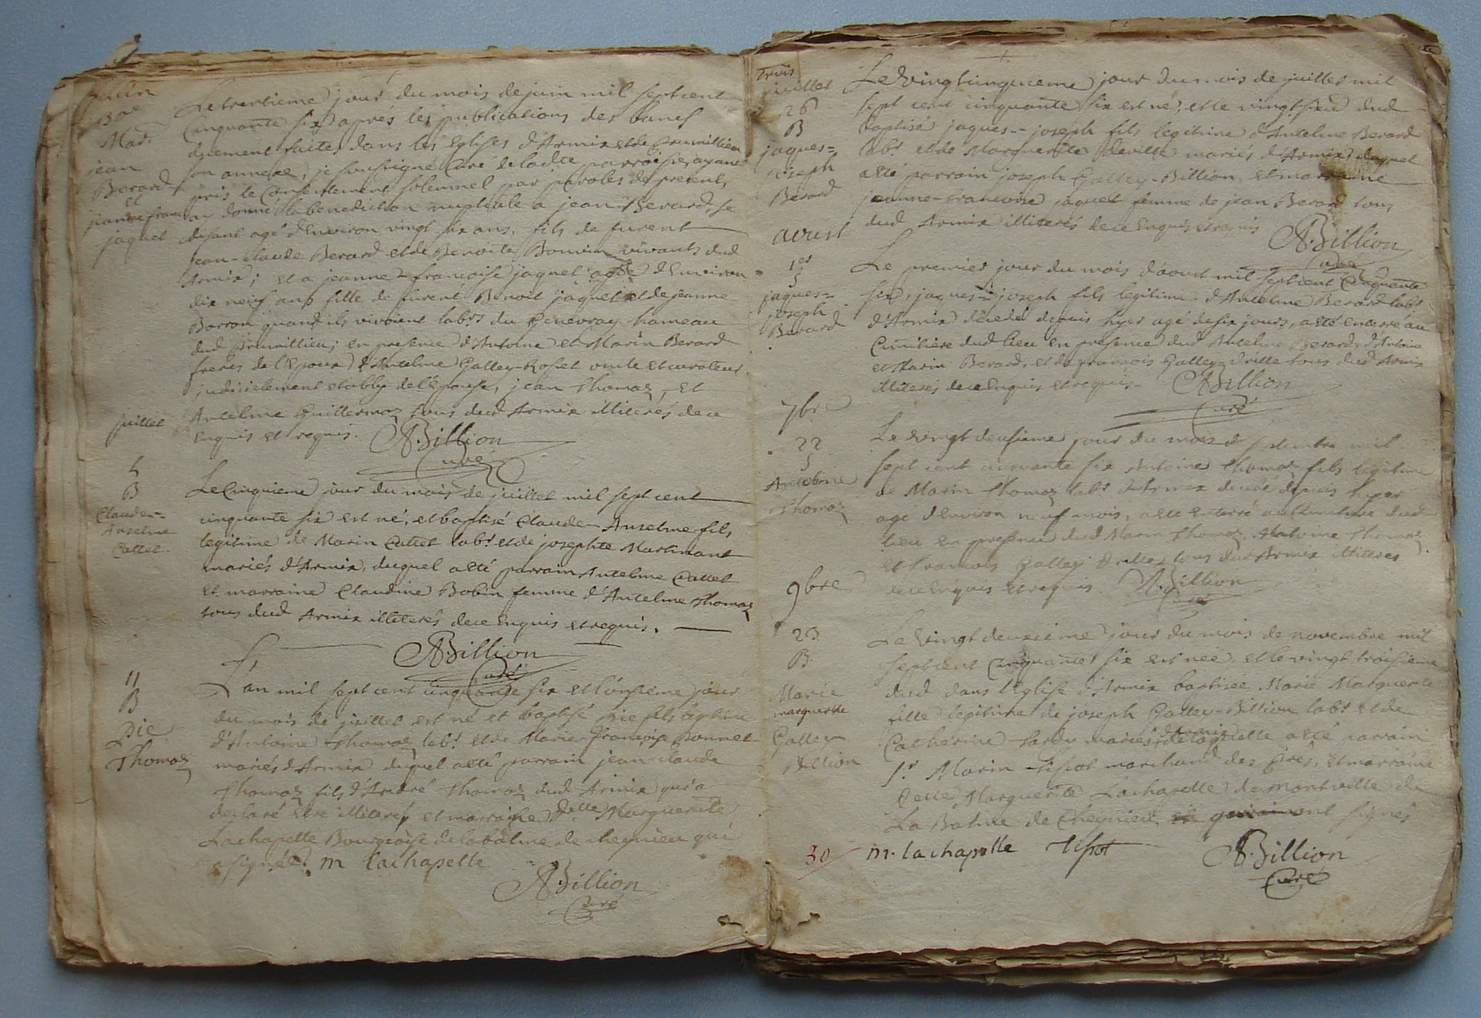 juin
30e
Mar.
jean
Berard
et
jeanne franc
jaquet
Le trentième jour du mois de juin mil sept cent
cinquante six apres les publications des bancs
duement faites dans les Eglises d'Armix et de Premillieu
son annexe, je soussigné Curé de ladte parroisse, ayant
pris le Consentement solemnel par paroles de present,
donné la benediction nuptiale a jean Berard, se
disant agé d'Environ vingt six ans, fils de furent
jean-claude Berard et de Benoite Bonvin vivants dud
Armix; et a jeanne-françoise jaquet agée d'Environ
dix neuf ans fille de furent Benoit jaquet et de jeanne
Barron quand ils vivoient labrs du Genevray hameau
dud premillieu; en presence d'Antoine et Marin Berard
freres de l'Epoux, d'Anteline Galley-Rosset oncle et curateur
judiciellement etably de l'Epouse, jean Thomaz, et
Anteline Guillermoz tous dud Armix illiterés de ce
Enquis et requis. ABillion
Curé
juillet
5
B
Claude-
Anselme
Cattet
Le Cinquieme jour du mois de juillet mil sept cent
cinquante six est né, et baptisé Claude-Anselme fils
legitime de Marin Cattet labr et de josephte Martinant
mariés d'Armix, duquel a eté parrain Anteline Cattet
et marraine Claudine Bobin femme d'Anteline Thomaz
tous dud Armix illiterés de ce Enquis et requis.
ABillion
Curé
11
B
Pie
Thomaz
L'an mil sept cent cinquante six et l'onzieme jour
du mois de juillet est né et baptisé Pie fils legitime
d'Antoine Thomaz labr et de Marie françoise Bonnet
mariés d'Armix duquel a eté parrain jean-claude
Thomaz fils d'André Thomaz dud Armix qui a
declaré etre illiteré, et marraine Delle Marguerite
Lachapelle Bourgeoise de la balme de cheynieu qui
a signée. m lachapelle
ABillion
Curé
Trois
juillet
26
B
jaques=
joseph
Berard
Le vingt cinquieme jour du mois de juillet mil
sept cent cinquante six est né, et le vingt six dud
baptisé jaques-joseph fils legitime d'Anteline Berard
labr et de Marguerite mariés d'Armix, duquel
a eté parrain joseph Galley-Billion et marraine
jeanne-francoise jaquet femme de jean Berard tous
dud Armix illiterés de ce Enquis et requis
ABillion
Curé
aoust
1er
jaques=
joseph
Berard
Le premier jour du mois d'aout mil sept cent cinquante
six, jaques-joseph fils legitime d'Anteline Berard labr
d'Armix décedé depuis hyer agé de six jours, a eté enterré au
Cimitiere dud lieu en presence dud Anteline Berard, d'Antoine
et Marin Berard, et de francois Galley-Drille tous dud Armix
illiterés de ce Enquis et requis. ABillion
Curé
7bre
22
Antoine
Thomaz
Le vingt deusieme jour du mois de septembre mil
sept cent cinquante six Antoine Thomaz fils legitime
de Marin Thomaz labr d'Armix decedé depuis hyer
agé d'Environ neuf mois, a eté enterré au Cimitiere dud
lieu en presence dud Marin Thomaz, Antoine Thomaz
et francois Galley Drille tous dud Armix illiteres
de ce Enquis et requis ABillion
Curé
9bre
23
B
Marie
marguerite
Galley-
Billion
Le vingt deuxieme jour du mois de novembre mil
sept cent cinquante six est née, et le vingt troisieme
dud dans l'Eglise d'Armix baptisée Marie Marguerite
fille legitime de joseph Galley-Billion labr et de
Catherine Tardy mariés d'Armix de laquelle a eté parrain
Sr Marin Tipot marchand des et marraine
Delle Marguerite Lachapelle de montville de
La Balme de Cheynieu qui ont signés
30 m. lachapelle Tipot ABillion
Curé